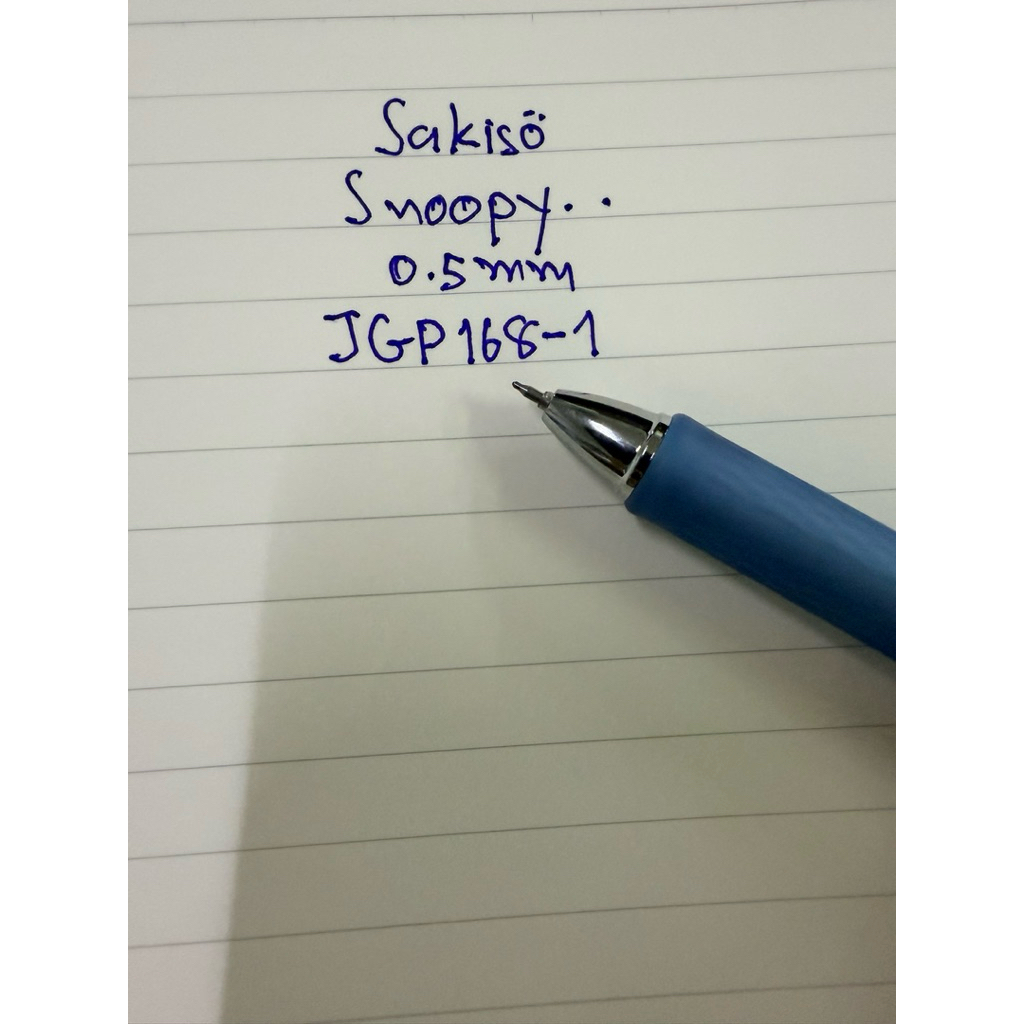 Sakisö
Snoopy..
0.5mm
JGP168-1